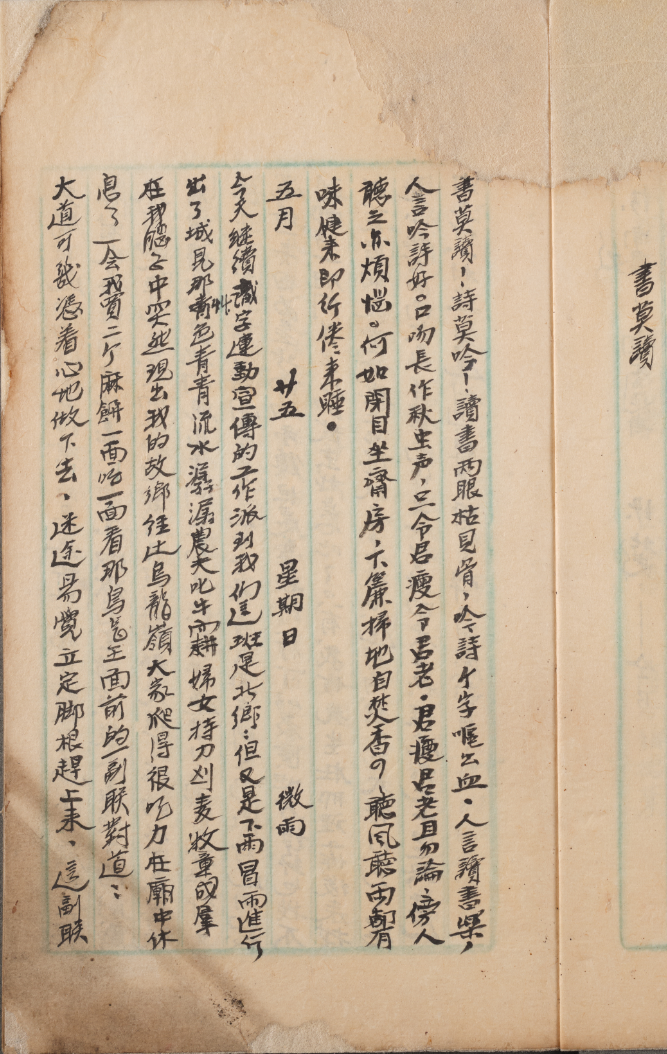 書莫讀
書莫讀！詩莫吟！讀書兩眼枯見骨，吟詩个字嘔出血。人言讀書樂，
人言吟詩好。口吻長作秋虫声，只令君瘦令君老。君瘦君老且勿論，傍人
聽之亦煩惱。何如閉目坐齋房，下簾掃地自焚香。聽風聽雨都有
味健来即行倦来睡。
五月 廿五 星期日 微雨
今天继續識字運動宣傳的工作派到我们這班是北鄉：但又是下雨冒雨進行
出了城見那草色青青流水潺潺農夫叱牛而耕婦女持刀刈麦牧童成羣
在我腦子中突然現出我的故鄉经过烏龍嶺大家爬得很吃力在廟中休
息了一会我買二个麻餅一面吃一面看那烏龙王面前的一副联對道：
大道可幾憑着心地做下去、迷途易覺立定脚根趕上来、這副联